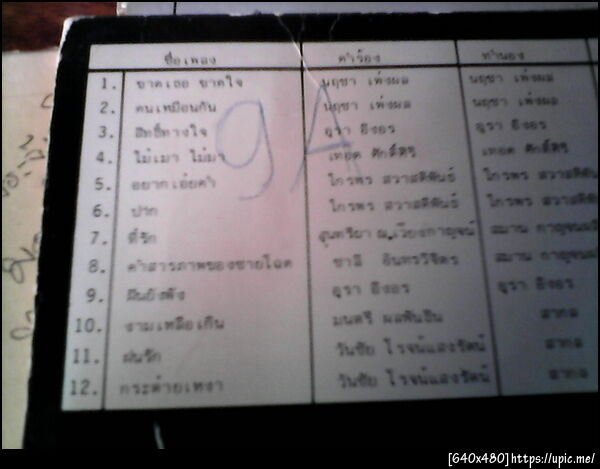 ชื่อเพลง คำร้อง ทำนอง
1. ขาดเธอ ขาดใจ นฤชา เพ่งผล นฤชา เพ่งผล
2. คนเหมือนกัน นฤชา เพ่งผล นฤชา เพ่งผล
3. สิทธิ์ทางใจ สุรา อึงอร สุรา อึงอร
4. ไม่เมา ไม่มา เทอด ศักดิ์สิริ เทอด ศักดิ์สิริ
5. อยากเอ่ยคำ ไกรพร สวาสดิพันธ์ ไกรพร สวาสดิพันธ์
6. ปาก ไกรพร สวาสดิพันธ์ ไกรพร สวาสดิพันธ์
7. ที่รัก สุนทรียา ณ.เวียงกาญจน์ สมาน กาญจนผลิน
8. คำสารภาพของชายโฉด ชาลี อินทรวิจิตร สมาน กาญจนผลิน
9. ฝันยังพัง
10. งามเหลือเกิน มนตรี ผลพันธิน สากล
11. ฝนรัก วันชัย โรจน์แสงรัตน์ สากล
12. กระต่ายเหงา วันชัย โรจน์แสงรัตน์ สากล
9A
[640x480]https://upic.me/